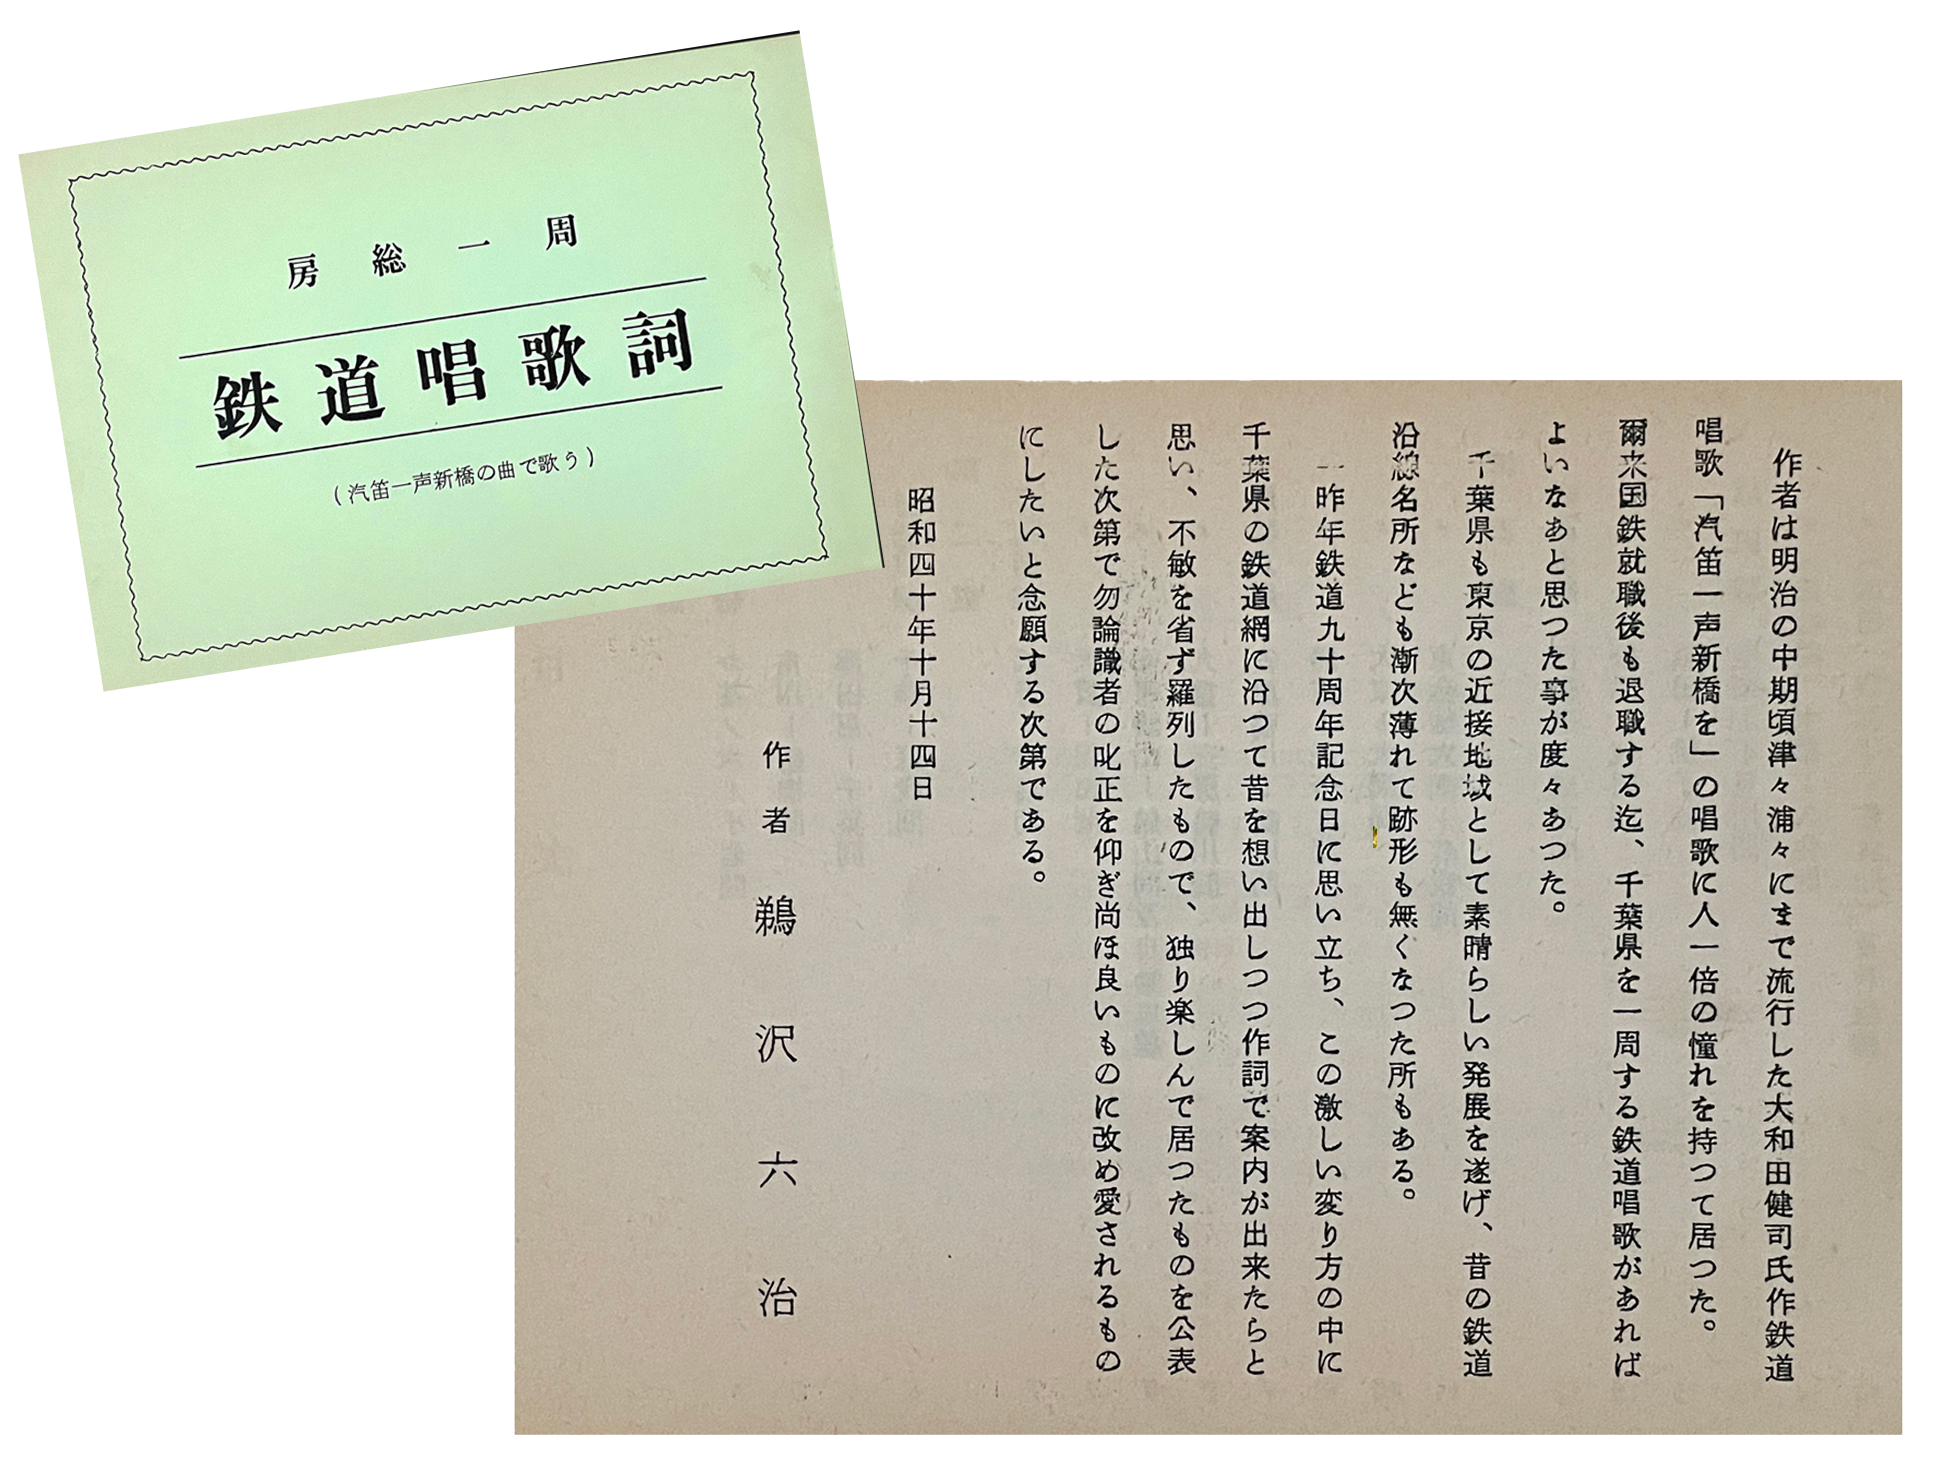 房総一周
鉄道唱歌詞
(汽笛一声新橋の曲で歌う)
作者は明治の中期頃津々浦々にまで流行した大和田健司氏作鉄道
唱歌「汽笛一声新橋を」の唱歌に人一倍の憧れを持つて居つた。
爾来国鉄就職後も退職する迄、千葉県を一周する鉄道唱歌があれば
よいなあと思つた事が度々あつた。
千葉県も東京の近接地域として素晴らしい発展を遂げ、昔の鉄道
沿線名所なども漸次薄れて跡形も無くなつた所もある。
一昨年鉄道九十周年記念日に思い立ち、この激しい変り方の中に
千葉県の鉄道網に沿つて昔を想い出しつつ作詞で案内が出来たらと
思い、不敏を省ず羅列したもので、独り楽しんで居つたものを公表
した次第で勿論識者の叱正を仰ぎ尚ほ良いものに改め愛されるもの
にしたいと念願する次第である。
昭和四十年十月十四日
作者 鵜沢六治